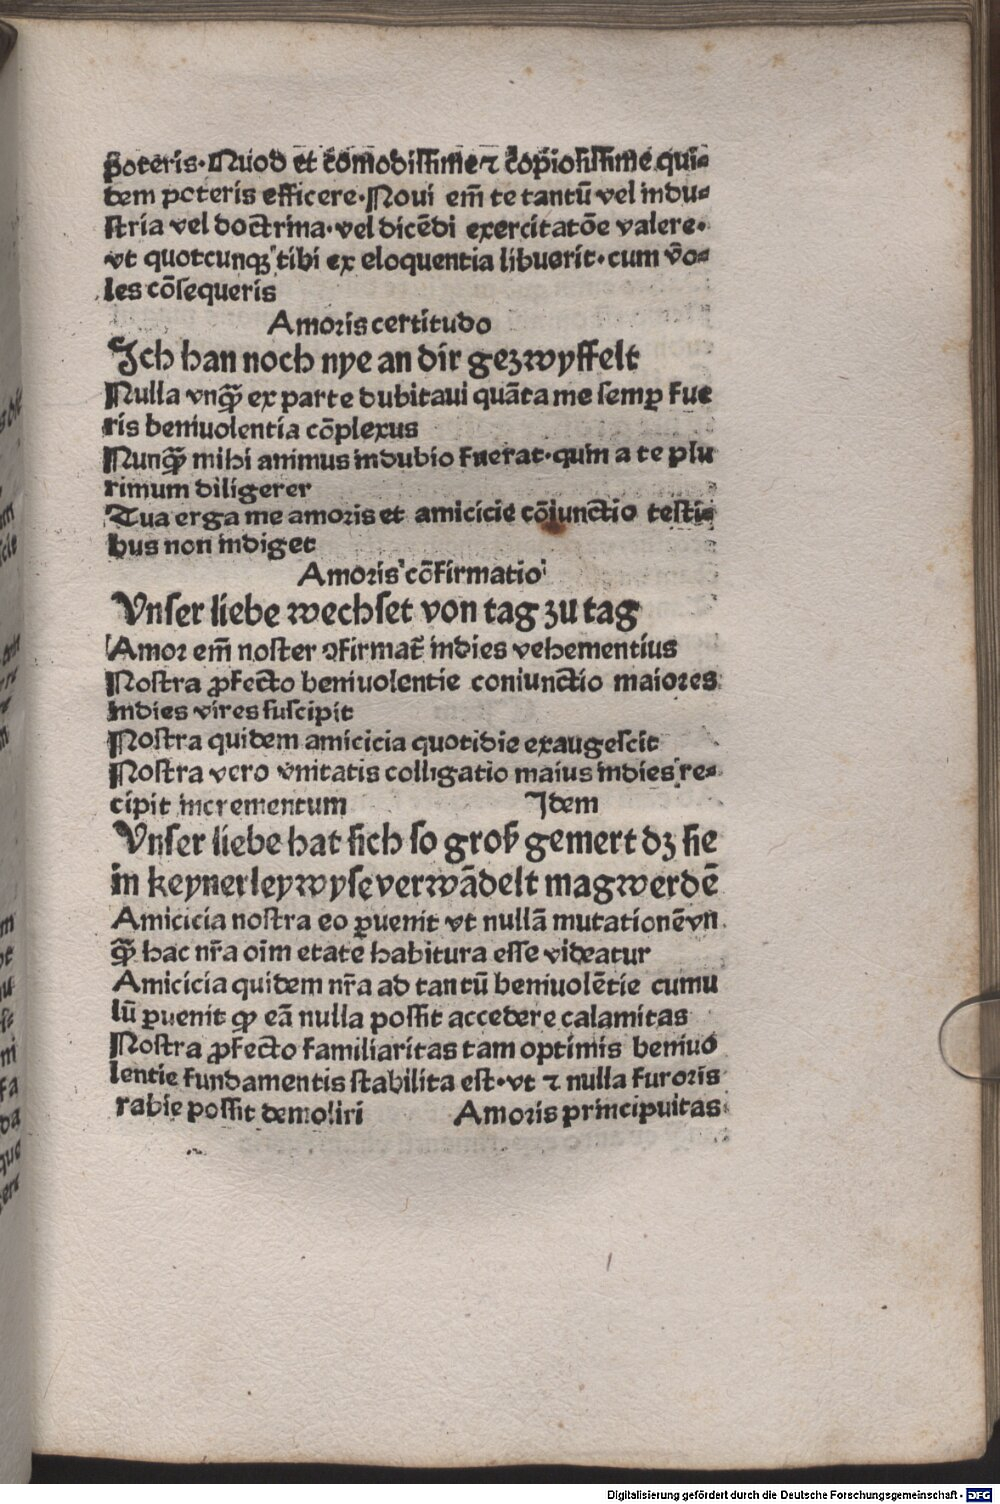 poteris. Quod et cōmodissime ⁊ copiosissime qui⸗
dem poteris efficere. Noui em̄ te tantū vel indu⸗
stria vel doctrina. vel dicēdi exercitatōe valere.
vt quotcunqꝫ tibi ex eloquentia libuerit. cum vo⸗
les cōsequeris
Amoris certitudo
Ich han noch nye an dir gezwyffelt
Nulla vnqꝫ̄ ex parte dubitaui quāta me semꝑ fue
ris beniuolentia cōplexus
Nunqꝫ̄ mihi animus indubio fuerat. quin a te plu
rimum diligerer
Tua erga me amoris et amicicie cōiunctio testi⸗
bus non indiget
Amoris cōfirmatio
Vnser liebe wechset von tag zu tag
Amor em̄ noster ↄfirmat᷑ indies vehementius
Nostra ꝓfecto beniuolentie coniunctio maiores
indies vires suscipit
Nostra quidem amicicia quotidie exaugescit
Nostra vero vnitatis colligatio maius indies re⸗
cipit incrementum Idem
Vnser liebe hat sich so groß gemert dꝫ sie
in keynerley wyse verwādelt mag werdē
Amicicia nostra eo ꝑuenit vt nullā mutationē vn
qꝫ̄ hac nr̄a oīm etate habitura esse videatur
Amicicia quidem nr̄a ad tantū beniuolētie cumu
lū ꝑuenit ꝙ eā nulla possit accedere calamitas
Nostra ꝓfecto familiaritas tam optimis beniuo
lentie fundamentis stabilita est. vt ⁊ nulla furoris
rabie possit demoliri Amoris principuitas
Digitalisierung gefördert durch die Deutsche Forschungsgemeinschaft - DFG